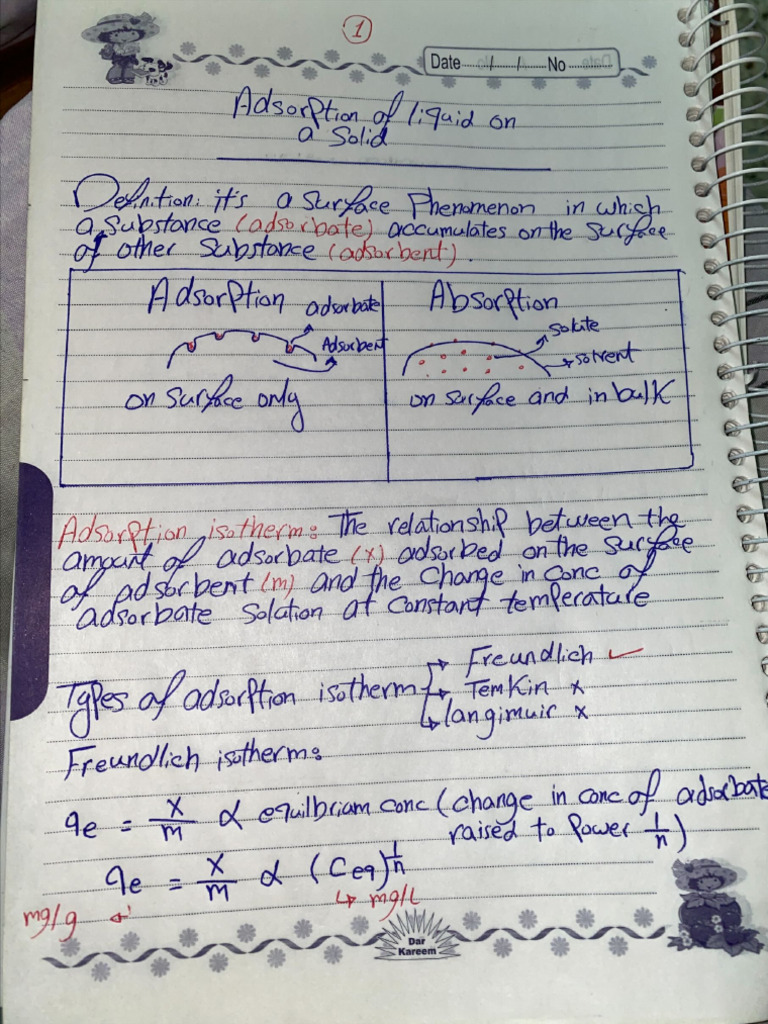 1
Date / / No
Adsorption of liquid on
a Solid
Definition: it's a surface Phenomenon in which
a substance (adsorbate) accumulates on the surface
of other substance (adsorbent).
Adsorption
adsorbate
Adsorbent
on surface only
Absorption
solute
solvent
on surface and in bulk
Adsorption isotherm: The relationship between the
amount of adsorbate (x) adsorbed on the surface
of adsorbent (m) and the change in conc of
adsorbate solation at constant temperature
Types of adsorption isotherm → Freundlich ✓
→ Temkin x
→ langimuir x
Freundlich isotherm:
qe = x/m α equilbriam conc (change in conc of adsorbate
raised to Power 1/n)
qe = x/m α (Ceq)^1/n
mg/g ↵ ↳ mg/L
Dar
Kareem